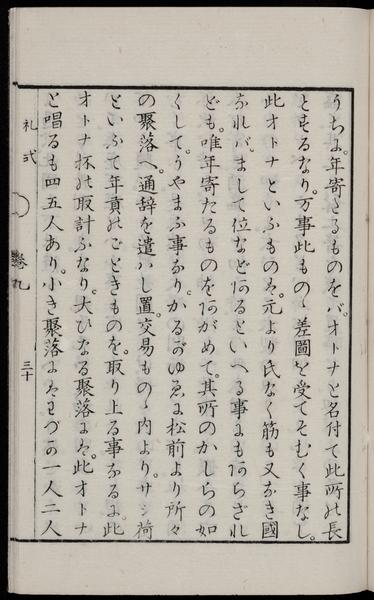 うちに年寄たるものをバ。オトナと名付て此所の長
とするなり。万事此ものゝ差圖を受てそむく事なし。
此オトナといふものは。元より氏なく筋も又なき國
なれバ。まして位などあるといへる事にもあらざれ
ども。唯年寄たるものをあがめて。其所のかしらの如
くして。うやまふ事なり。かるがゆゑに松前より所々
の聚落へ。通辞を遣ハし置。交易ものゝ内より。サシ荷
といふて年貢のごときものを。取り上る事なるに。此
オトナ杯の取計ふなり。大ひなる聚落にハ。此オトナ
と唱るも四五人あり。小き聚落にハわづか一人二人
礼式
巻九
三十